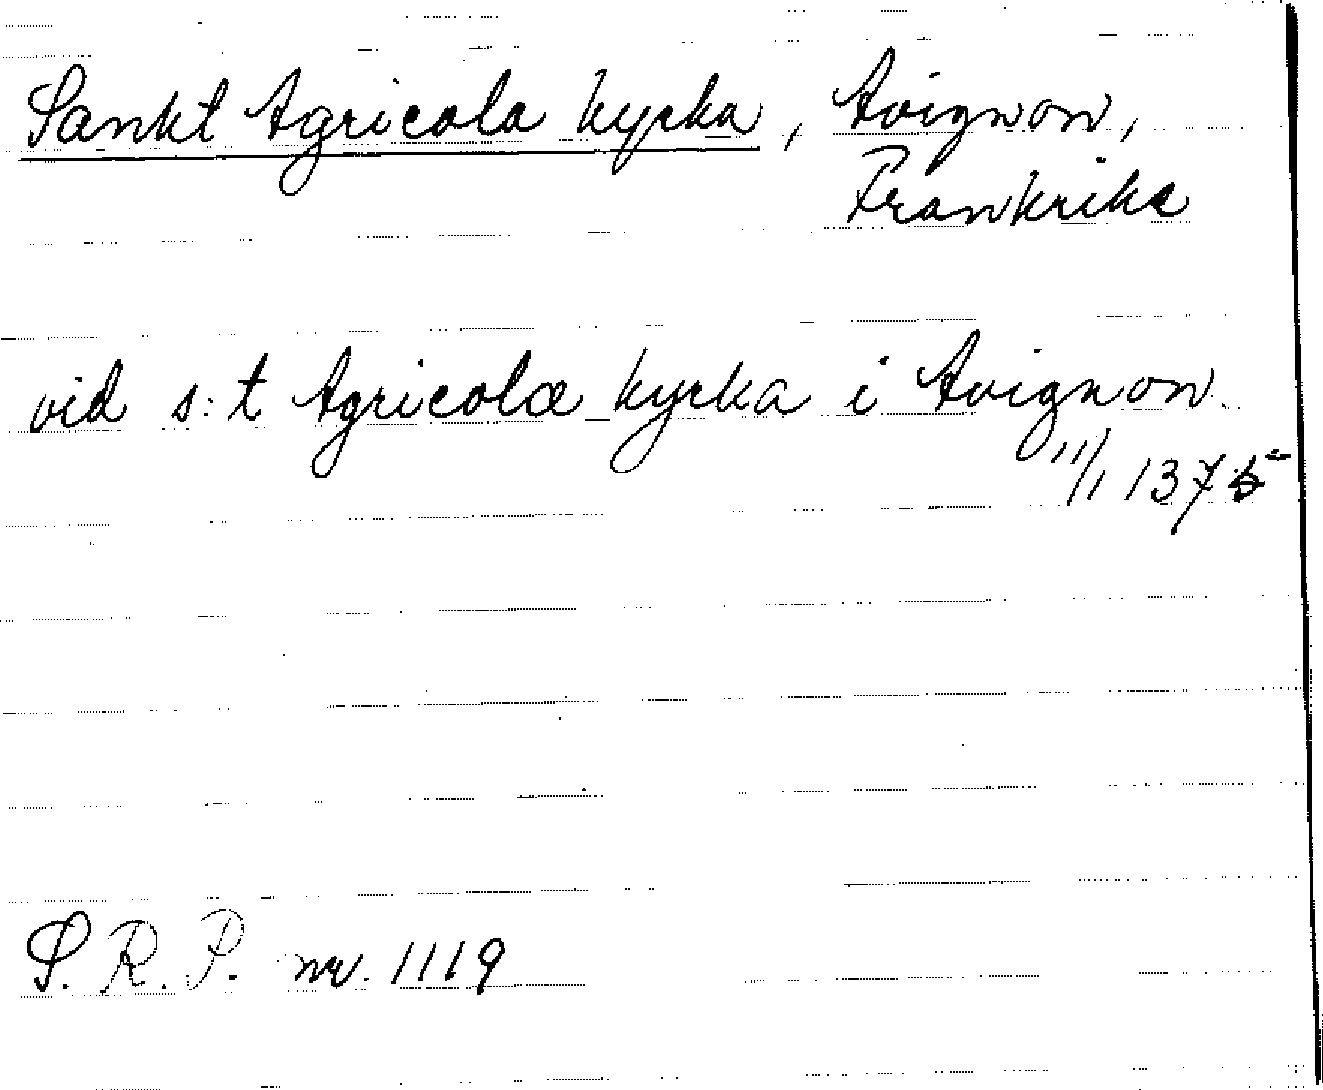 Sankt Agricola kyrka, Avignon,
Frankrike
vid s:t Agricolæ kyrka i Avignon.
11/1 1375
S.R.P. nr. 1119